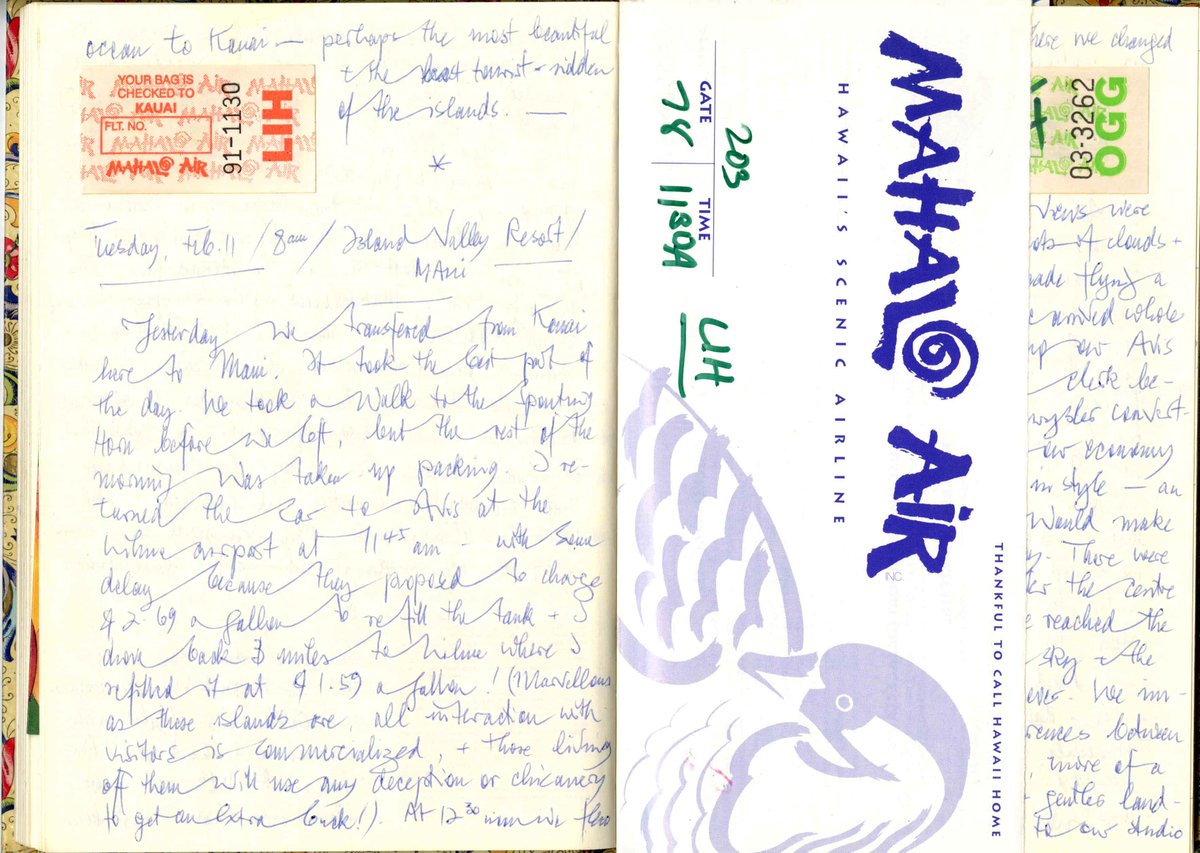 ocean to Kauai — perhaps the most beautiful
+ the least tourist-ridden
of the islands. —
YOUR BAG IS
CHECKED TO
KAUAI
FLT. NO.
MAHALO AIR
91-1130
LIH
*
Tuesday, Feb. 11 / 8am / Island Valley Resort /
Maui
Yesterday we transfered from Kauai
here to Maui. It took the best part of
the day. We took a walk to the Spouting
Horn before we left, but the rest of the
morning was taken up packing. I re-
turned the car to Avis at the
Lihue airport at 11 45 am - with some
delay because they proposed to charge
$2.69 a gallon to refill the tank + I
drove back 3 miles to Lihue where I
refilled it at $1.59 a gallon! (Marvellous
as these islands are, all interaction with
visitors is commercialized, + those living
off them will use any deception or chicanery
to get an extra buck!). At 12 30 we
GATE
78
203
TIME
1130A
LIH
HAWAII'S SCENIC AIRLINE
MAHALO AIR
INC.
THANKFUL TO CALL HAWAII HOME
here we changed
03-3262
OGG
views were
of clouds +
flying a
arrived whole
our Avis
clerk be-
convert-
our economy
in style — an
would make
There were
the centre
reached the
sky + the
ever. We im-
rences between
, more of a
gentler land-
to our studio